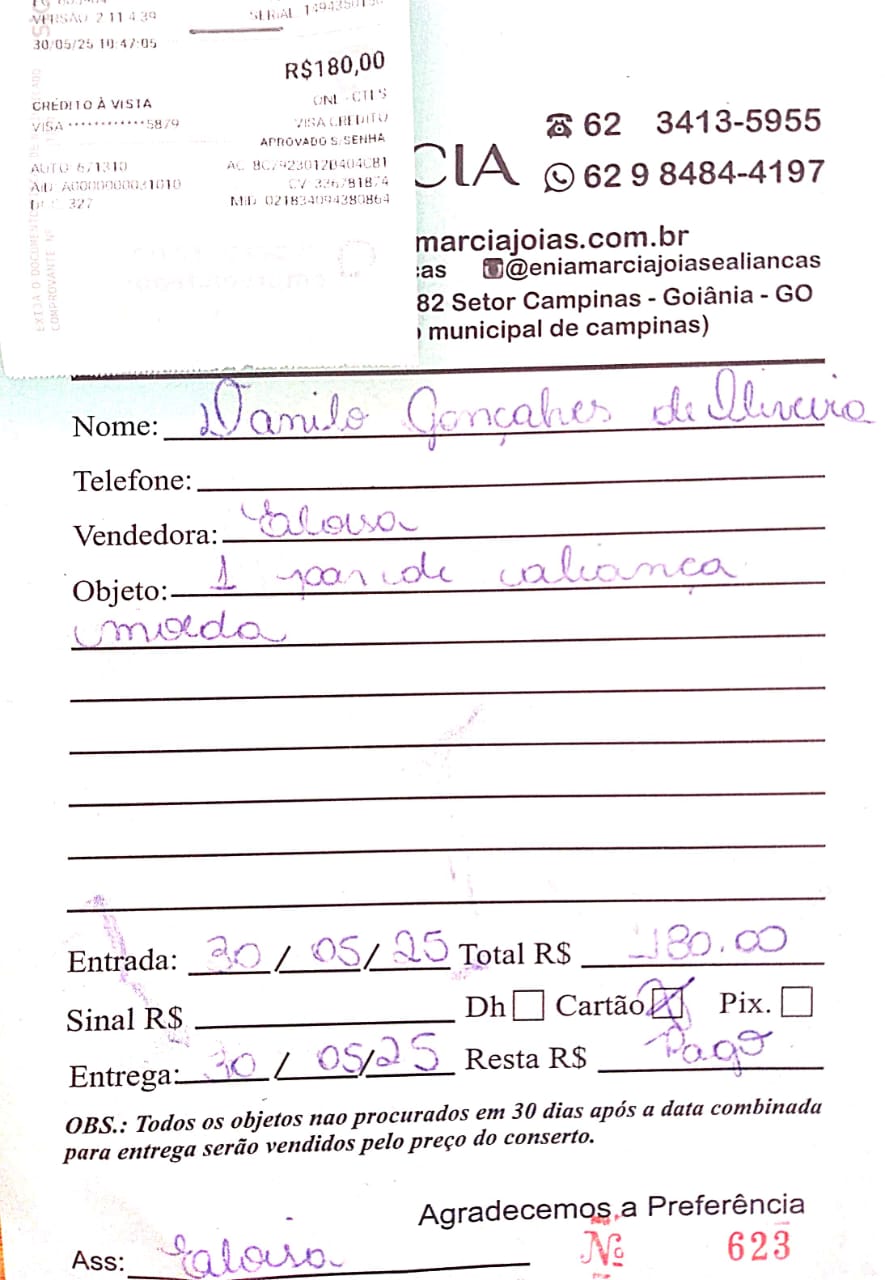 VERSÃO 2.11.4.39 SERIAL
30/05/25 10:47:05
R$180,00
CRÉDITO À VISTA ONL-CTLS
VISA ************5879 VISA CREDITO
APROVADO S/SENHA
AUTO 671310 AC 8C7923012B404C81
AID A0000000031010 CV 336781874
327 MID 021834094380864
EXIJA O DOCUMENTO
COMPROVANTE Nº
CIA
62 3413-5955
62 9 8484-4197
marciajoias.com.br
as @eniamarciajoiasealiancas
82 Setor Campinas - Goiânia - GO
municipal de campinas)
Nome: Danilo Gonçalves de Oliveira
Telefone:
Vendedora: Eloisa
Objeto: 1 par de aliança
moeda
Entrada: 30 / 05 / 25 Total R$ 180.00
Sinal R$ Dh Cartão X Pix.
Entrega: 30 / 05/25 Resta R$ Pago
OBS.: Todos os objetos nao procurados em 30 dias após a data combinada
para entrega serão vendidos pelo preço do conserto.
Agradecemos a Preferência
Ass: Eloisa Nº 623